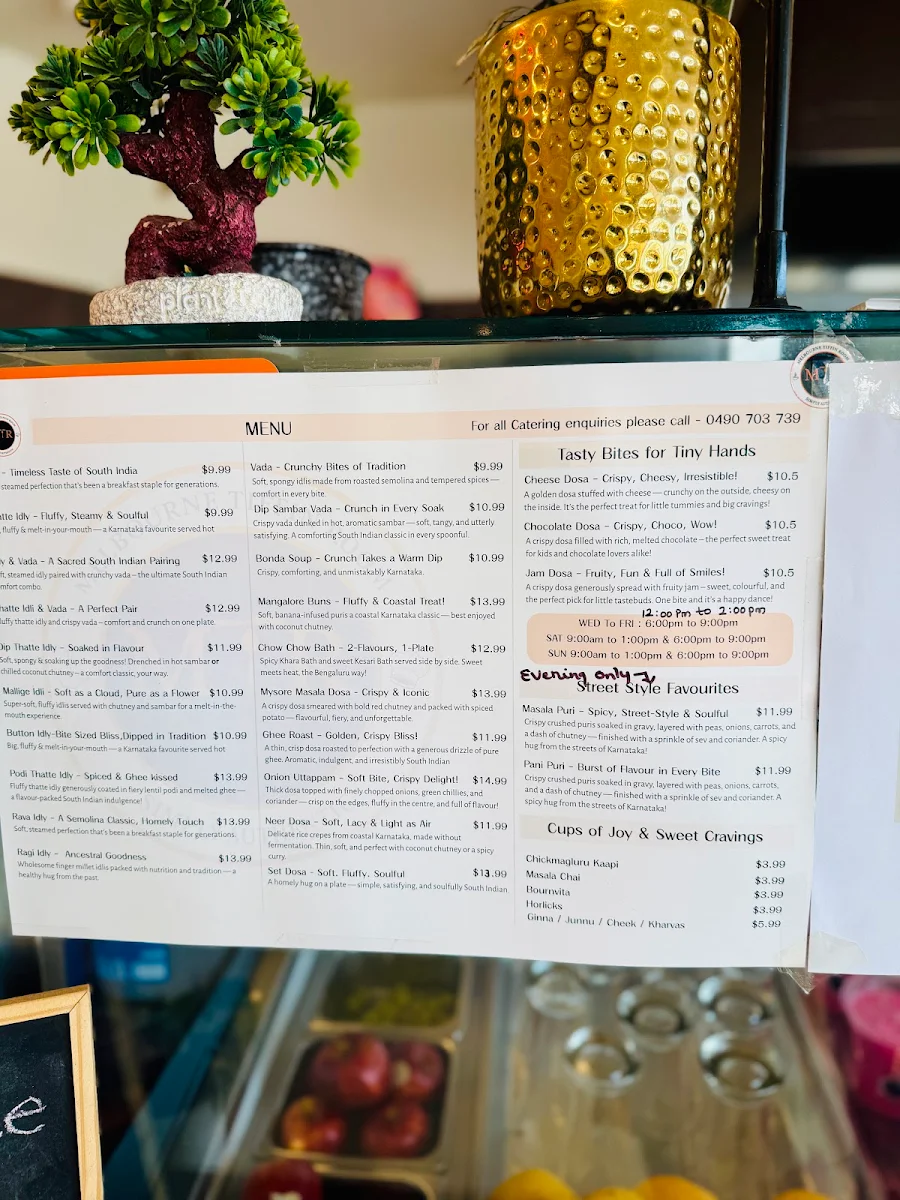 plant
MENU
For all Catering enquiries please call - 0490 703 739
- Timeless Taste of South India $9.99
steamed perfection that's been a breakfast staple for generations.
Idly - Fluffy, Steamy & Soulful $9.99
fluffy & melt-in-your-mouth — a Karnataka favourite served hot
& Vada - A Sacred South Indian Pairing $12.99
steamed idly paired with crunchy vada – the ultimate South Indian
combo.
Idli & Vada - A Perfect Pair $12.99
thatte idly and crispy vada – comfort and crunch on one plate.
Dip Thatte Idly - Soaked in Flavour $11.99
Soft, spongy & soaking up the goodness! Drenched in hot sambar or
chilled coconut chutney – a comfort classic, your way.
Mallige Idli - Soft as a Cloud, Pure as a Flower $10.99
Super-soft, fluffy idlis served with chutney and sambar for a melt-in-the-
mouth experience.
Button Idly-Bite Sized Bliss,Dipped in Tradition $10.99
Big, fluffy & melt-in-your-mouth — a Karnataka favourite served hot
Podi Thatte Idly - Spiced & Ghee kissed $13.99
Fluffy thatte idly generously coated in fiery lentil podi and melted ghee —
a flavour-packed South Indian indulgence!
Rava Idly - A Semolina Classic, Homely Touch $13.99
Soft, steamed perfection that's been a breakfast staple for generations.
Ragi Idly - Ancestral Goodness $13.99
Wholesome finger millet idlis packed with nutrition and tradition — a
healthy hug from the past.
Vada - Crunchy Bites of Tradition $9.99
Soft, spongy idlis made from roasted semolina and tempered spices —
comfort in every bite.
Dip Sambar Vada - Crunch in Every Soak $10.99
Crispy vada dunked in hot, aromatic sambar — soft, tangy, and utterly
satisfying. A comforting South Indian classic in every spoonful.
Bonda Soup - Crunch Takes a Warm Dip $10.99
Crispy, comforting, and unmistakably Karnataka.
Mangalore Buns - Fluffy & Coastal Treat! $13.99
Soft, banana-infused puris a coastal Karnataka classic — best enjoyed
with coconut chutney.
Chow Chow Bath - 2-Flavours, 1-Plate $12.99
Spicy Khara Bath and sweet Kesari Bath served side by side. Sweet
meets heat, the Bengaluru way!
Mysore Masala Dosa - Crispy & Iconic $13.99
A crispy dosa smeared with bold red chutney and packed with spiced
potato — flavourful, fiery, and unforgettable.
Ghee Roast - Golden, Crispy Bliss! $11.99
A thin, crisp dosa roasted to perfection with a generous drizzle of pure
ghee. Aromatic, indulgent, and irresistibly South Indian
Onion Uttappam - Soft Bite, Crispy Delight! $14.99
Thick dosa topped with finely chopped onions, green chillies, and
coriander — crisp on the edges, fluffy in the centre, and full of flavour!
Neer Dosa - Soft, Lacy & Light as Air $11.99
Delicate rice crepes from coastal Karnataka, made without
fermentation. Thin, soft, and perfect with coconut chutney or a spicy
curry.
Set Dosa - Soft. Fluffy. Soulful $13.99
A homely hug on a plate — simple, satisfying, and soulfully South Indian
Tasty Bites for Tiny Hands
Cheese Dosa - Crispy, Cheesy, Irresistible! $10.5
A golden dosa stuffed with cheese — crunchy on the outside, cheesy on
the inside. It's the perfect treat for little tummies and big cravings!
Chocolate Dosa - Crispy, Choco, Wow! $10.5
A crispy dosa filled with rich, melted chocolate – the perfect sweet treat
for kids and chocolate lovers alike!
Jam Dosa - Fruity, Fun & Full of Smiles! $10.5
A crispy dosa generously spread with fruity jam – sweet, colourful, and
the perfect pick for little tastebuds. One bite and it's a happy dance!
12:00 Pm to 2:00 pm
WED To FRI : 6:00pm to 9:00pm
SAT 9:00am to 1:00pm & 6:00pm to 9:00pm
SUN 9:00am to 1:00pm & 6:00pm to 9:00pm
Evening only
Street Style Favourites
Masala Puri - Spicy, Street-Style & Soulful $11.99
Crispy crushed puris soaked in gravy, layered with peas, onions, carrots, and
a dash of chutney — finished with a sprinkle of sev and coriander. A spicy
hug from the streets of Karnataka!
Pani Puri - Burst of Flavour in Every Bite $11.99
Crispy crushed puris soaked in gravy, layered with peas, onions, carrots,
and a dash of chutney — finished with a sprinkle of sev and coriander. A
spicy hug from the streets of Karnataka!
Cups of Joy & Sweet Cravings
Chickmagluru Kaapi $3.99
Masala Chai $3.99
Bournvita $3.99
Horlicks $3.99
Ginna / Junnu / Cheek / Kharvas $5.99